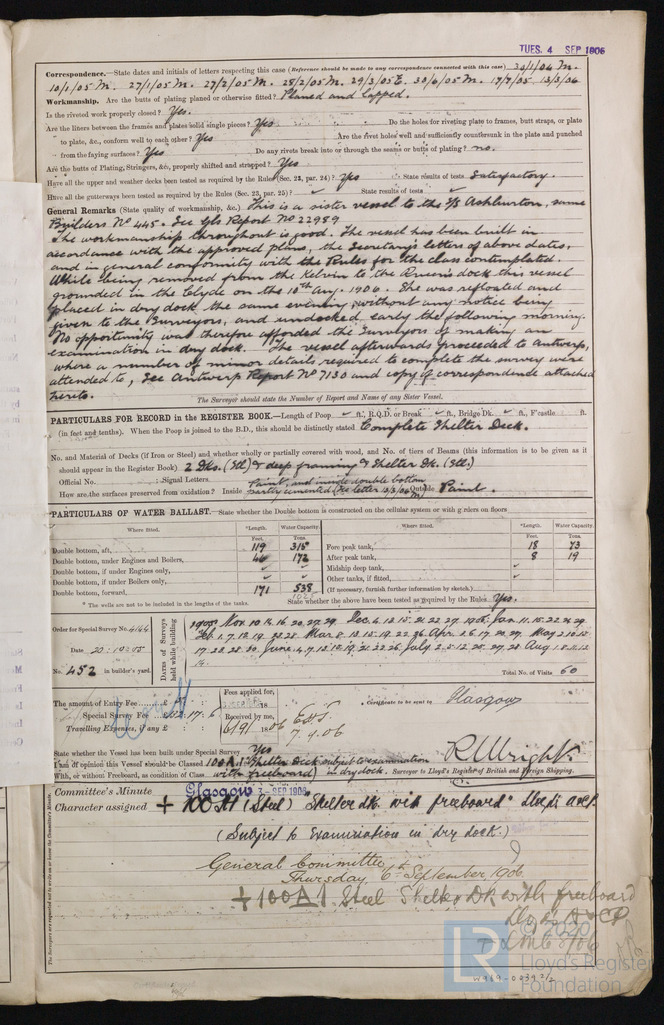 TUES. 4 SEP 1906
Correspondence.—State dates and initials of letters respecting this case (Reference should be made to any correspondence connected with this case) 30/1/04 M.
10/1/05 M. 27/1/05 M. 27/2/05 M. 28/2/05 M. 29/3/05 E. 30/6/05 M. 17/7/05 13/3/06
Workmanship. Are the butts of plating planed or otherwise fitted? Planed and lapped.
Is the riveted work properly closed? Yes.
Are the liners between the frames and plates solid single pieces? Yes Do the holes for riveting plate to frames, butt straps, or plate
to plate, &c., conform well to each other? Yes Are the rivet holes well and sufficiently countersunk in the plate and punched
from the faying surfaces? Yes Do any rivets break into or through the seams or butts of plating? no.
Are the butts of Plating, Stringers, &c, properly shifted and strapped? Yes
Have all the upper and weather decks been tested as required by the Rules (Sec. 23, par. 24)? Yes State results of tests Satisfactory.
Have all the gutterways been tested as required by the Rules (Sec. 23, par. 25)? State results of tests
General Remarks (State quality of workmanship, &c.) This is a sister vessel to the S/S Ashburton, same
Builders No 445. See Gls Report No 22989
The workmanship throughout is good. The vessel has been built in
accordance with the approved plans, the Secretary's letters of above dates,
and in general conformity with the Rules for the class contemplated.
While being removed from the Kelvin to the Queen's dock this vessel
grounded in the Clyde on the 18th Aug. 1906. She was refloated and
placed in dry dock the same evening, without any notice being
given to the Surveyors, and undocked early the following morning.
No opportunity was therefore afforded the Surveyors of making an
examination in dry dock. The vessel afterwards proceeded to Antwerp,
where a number of minor details, required to complete the survey were
attended to, See Antwerp Report No 7130 and copy of correspondence attached
hereto.
The Surveyor should state the Number of Report and Name of any Sister Vessel.
PARTICULARS FOR RECORD in the REGISTER BOOK.—Length of Poop ft., R.Q.D. or Break ft., Bridge Dk. ft., F'castle ft.
(in feet and tenths). When the Poop is joined to the B.D., this should be distinctly stated Complete Shelter Deck.
No. and Material of Decks (if Iron or Steel) and whether wholly or partially covered with wood, and No. of tiers of Beams (this information is to be given as it
should appear in the Register Book) 2 Dks. (Stl) & deep framing & Shelter Dk. (Stl.)
Official No. Signal Letters
How are the surfaces preserved from oxidation? Inside Paint, and inside double bottom partly cemented (See letter 13/3/06 M) Outside Paint.
PARTICULARS OF WATER BALLAST.—State whether the Double bottom is constructed on the cellular system or with girders on floors
Where fitted. *Length. Water Capacity. Where fitted. *Length. Water Capacity.
Feet. Tons. Feet. Tons.
Double bottom, aft, 119 315 Fore peak tank, 18 73
Double bottom, under Engines and Boilers, 46 172 After peak tank, 8 19
Double bottom, if under Engines only, Midship deep tank,
Double bottom, if under Boilers only, Other tanks, if fitted,
Double bottom, forward, 171 538 (If necessary, furnish further information by sketch.)
1025
* The wells are not to be included in the lengths of the tanks. State whether the above have been tested as required by the Rules Yes.
Order for Special Survey No. 4144
Date
No. 452 in builder's yard.
Dates of Surveys held while building
1905 Nov. 10. 14. 16. 20. 27. 29. Dec. 4. 6. 12. 15. 21. 22. 27. 1906. Jan. 11. 15. 22. 24. 29.
Total No. of Visits 60
The amount of Entry Fee £ 5 : :
Special Survey Fee £
Travelling Expenses, if any £ : :
Fees applied for,
Received by me,
6/9/1906
7.9.06
Certificate to be sent to Glasgow
State whether the Vessel has been built under Special Survey Yes
I am of opinion this Vessel should be Classed 100 A.1 "Shelter Deck subject to examination
With, or without Freeboard, as condition of Class with freeboard) in dry dock. Surveyor to Lloyd's Register of British and Foreign Shipping.
R Wright.
Committee's Minute Glasgow 3 - SEP 1906
Character assigned + 100 A1 (Steel) "Shelter dk with freeboard"
(Subject to Examination in dry dock.)
General Committee
Thursday, 6th September, 1906.
+ 100 A 1 Steel Shelter Dk with freeboard
+ LMC 8/06
W969-0239 2/2
LR
© 2020
Lloyd's Register
Foundation